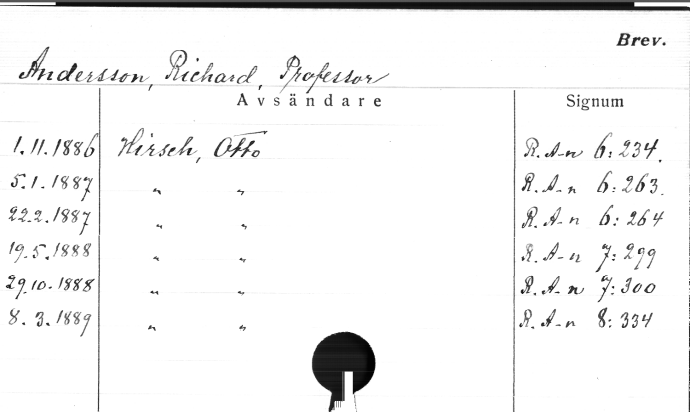 Brev.
Andersson, Richard, Professor
Avsändare Signum
1.11.1886 Hirsch, Otto R. A-n 6:234.
5.1.1887 " " R. A-n 6:263.
22.2.1887 " " R. A-n 6:264
19.5.1888 " " R. A-n 7:299
29.10.1888 " " R. A-n 7:300
8.3.1889 " " R. A-n 8:334